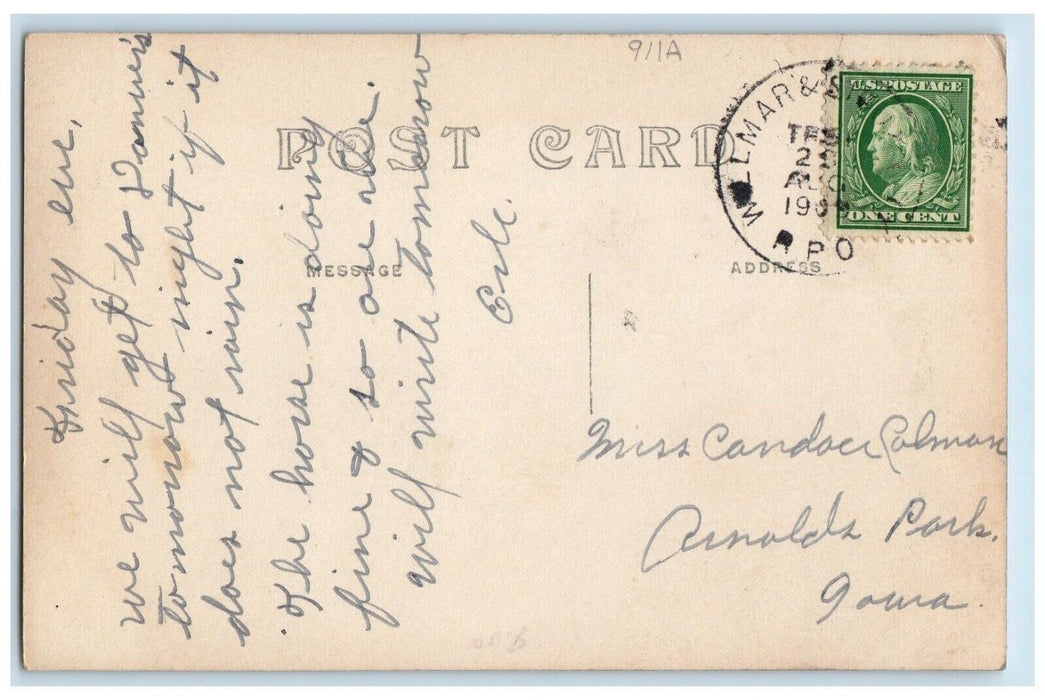 911A
POST CARD
WILLMAR &
TR
2
AUG
RPO
U.S. POSTAGE
ONE CENT
MESSAGE
ADDRESS
Friday eve,
We will get to
tomorrow night if it
does not rain.
The horse is doing
fine & so are we.
Will write tomorrow
Miss Candace Colman
Arnolds Park.
Iowa